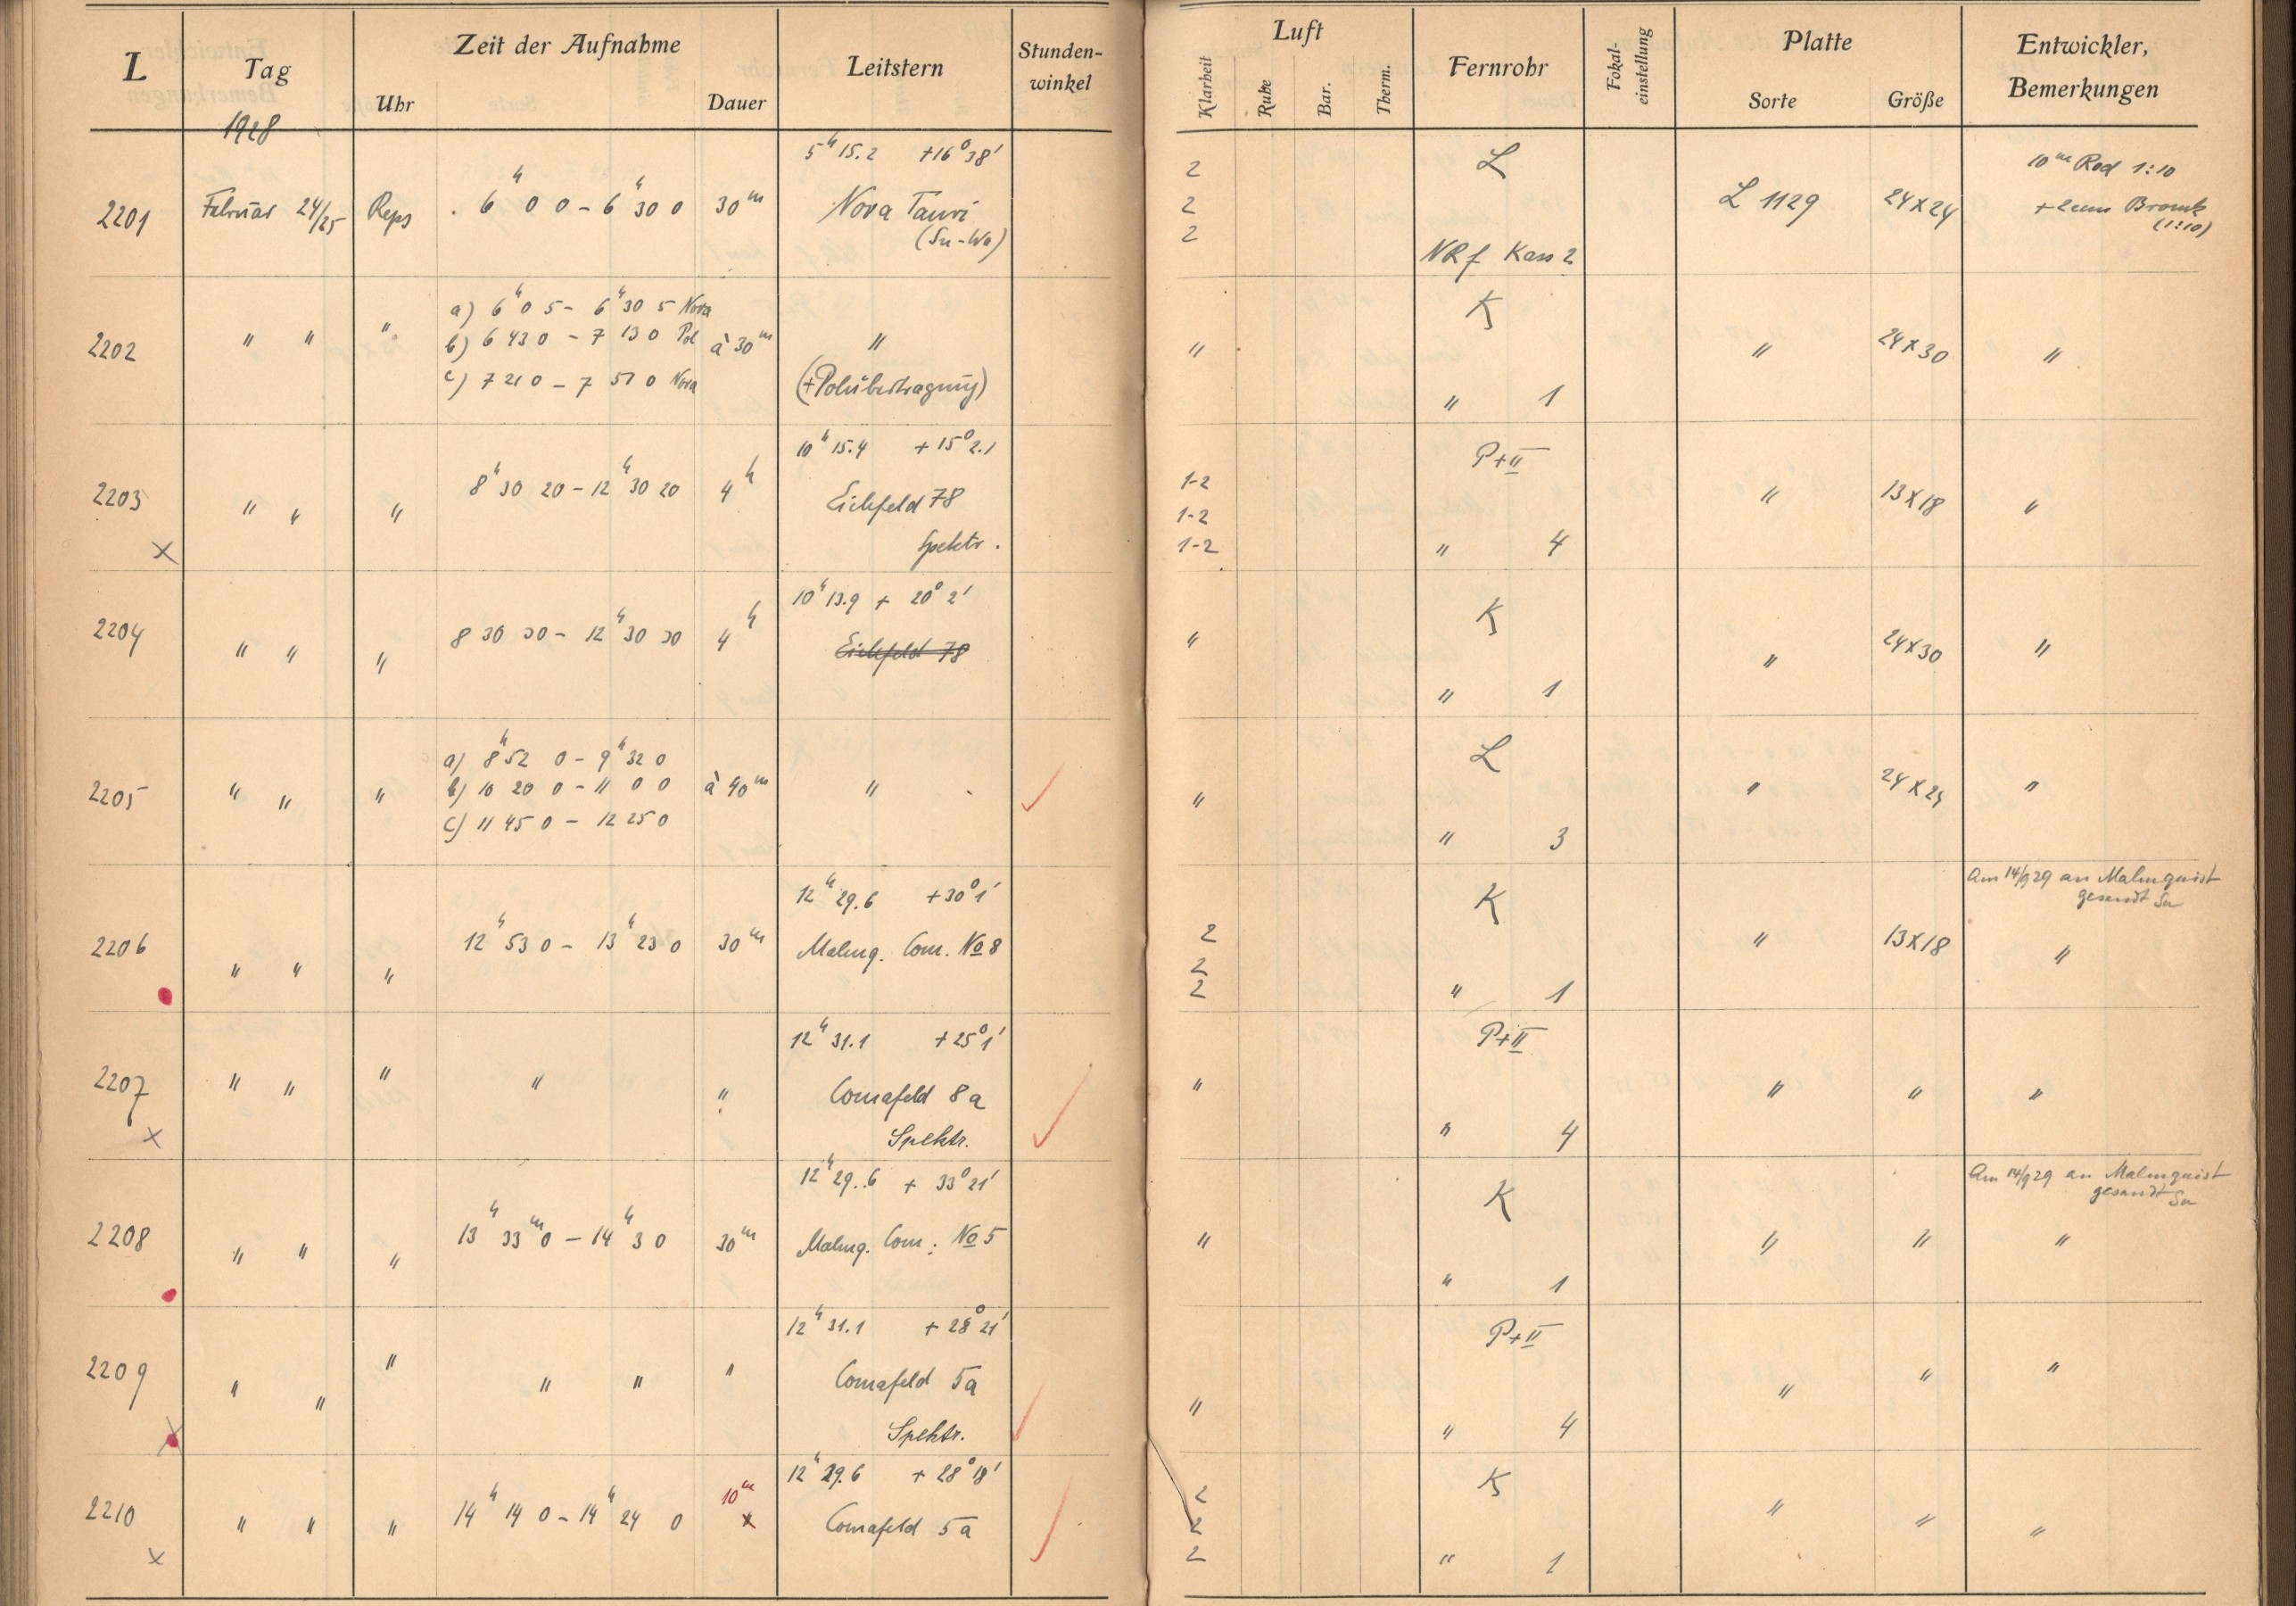 L Tag Zeit der Aufnahme Leitstern Stunden-winkel Luft Fernrohr Fokal-einstellung Platte Entwickler, Bemerkungen
Uhr Dauer Klarheit Ruhe Bar. Therm. Sorte Größe
1928
5h 15.2 +16° 38'
2 L 10m Rod 1:10
2201 Februar 24/25 Reps 6h 0 0 – 6h 30 0 30m Nova Tauri 2 L 1129 24X24 +2ccm Bromk (1:10)
(Su-Wa) 2 NRf Kass 2
a) 6h 0 5 – 6h 30 5 Nova K
2202 " " " b) 6 43 0 – 7 13 0 Pol à 30m " " " 24X30 "
c) 7 21 0 – 7 51 0 Nova (+Polübertragung) " 1
10h 15.4 +15° 2.1 P+II
2203 " " " 8h 30 20 – 12h 30 20 4h Eichfeld 78 1-2 1-2 1-2 " 13X18 "
x Spektr. " 4
10h 13.9 + 20° 2' K
2204 " " " 8 30 30 – 12h 30 30 4h Eichfeld 78 " " 24X30 "
" 1
a) 8h 52 0 – 9h 32 0 L
2205 " " " b) 10 20 0 – 11 0 0 à 40m " " " 24X24 "
c) 11 45 0 – 12 25 0 " 3
12h 29.6 +30° 1' K Am 14/9 29 an Malmquist gesandt Su
2206 " " " 12h 53 0 – 13h 23 0 30m Malmq. Com. No 8 2 2 2 " 13X18 "
" 1
12h 31.1 +25° 1' P+II
2207 " " " " " Comafeld 8a " " " "
x Spektr. " 4
12h 29.6 + 33° 21' K Am 14/9 29 an Malmquist gesandt Su
2208 " " " 13h 33m 0 – 14h 3 0 30m Malmq. Com: No 5 " " " "
" 1
12h 31.1 + 28° 21' P+II
2209 " " " " " " Comafeld 5a " " " "
x Spektr. " 4
12h 29.6 + 28° 18' K
2210 " " " 14h 14 0 – 14h 24 0 10m x Comafeld 5a 2 2 2 " " "
x " 1